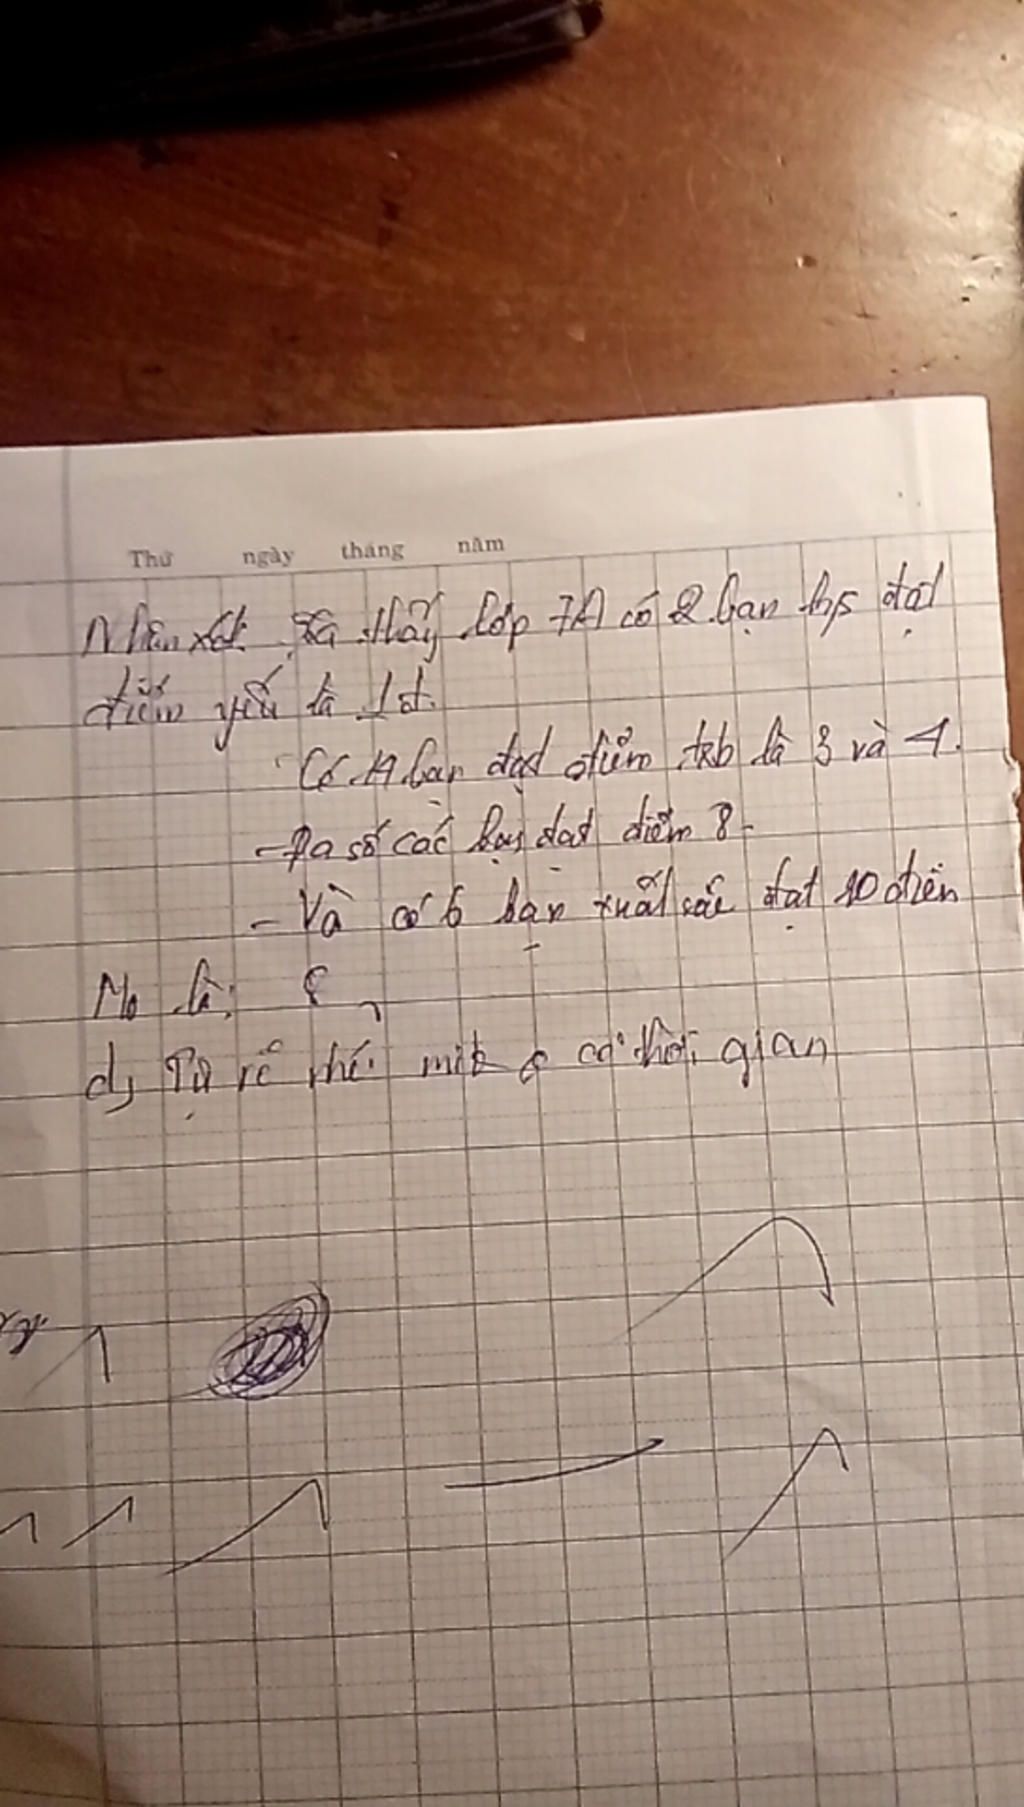 Thứ ngày tháng năm
Nhận xét. Ta thấy lớp 7A có 2 bạn hs đạt
điểm yếu là 1đ.
Có 14 bạn đạt điểm trb là 3 và 4.
- Đa số các bạn đạt điểm 8-
- Và có 6 bạn xuất sắc đạt 10 điểm
Mo là: 8
d, Tự vẽ nhé. mik o có thời gian